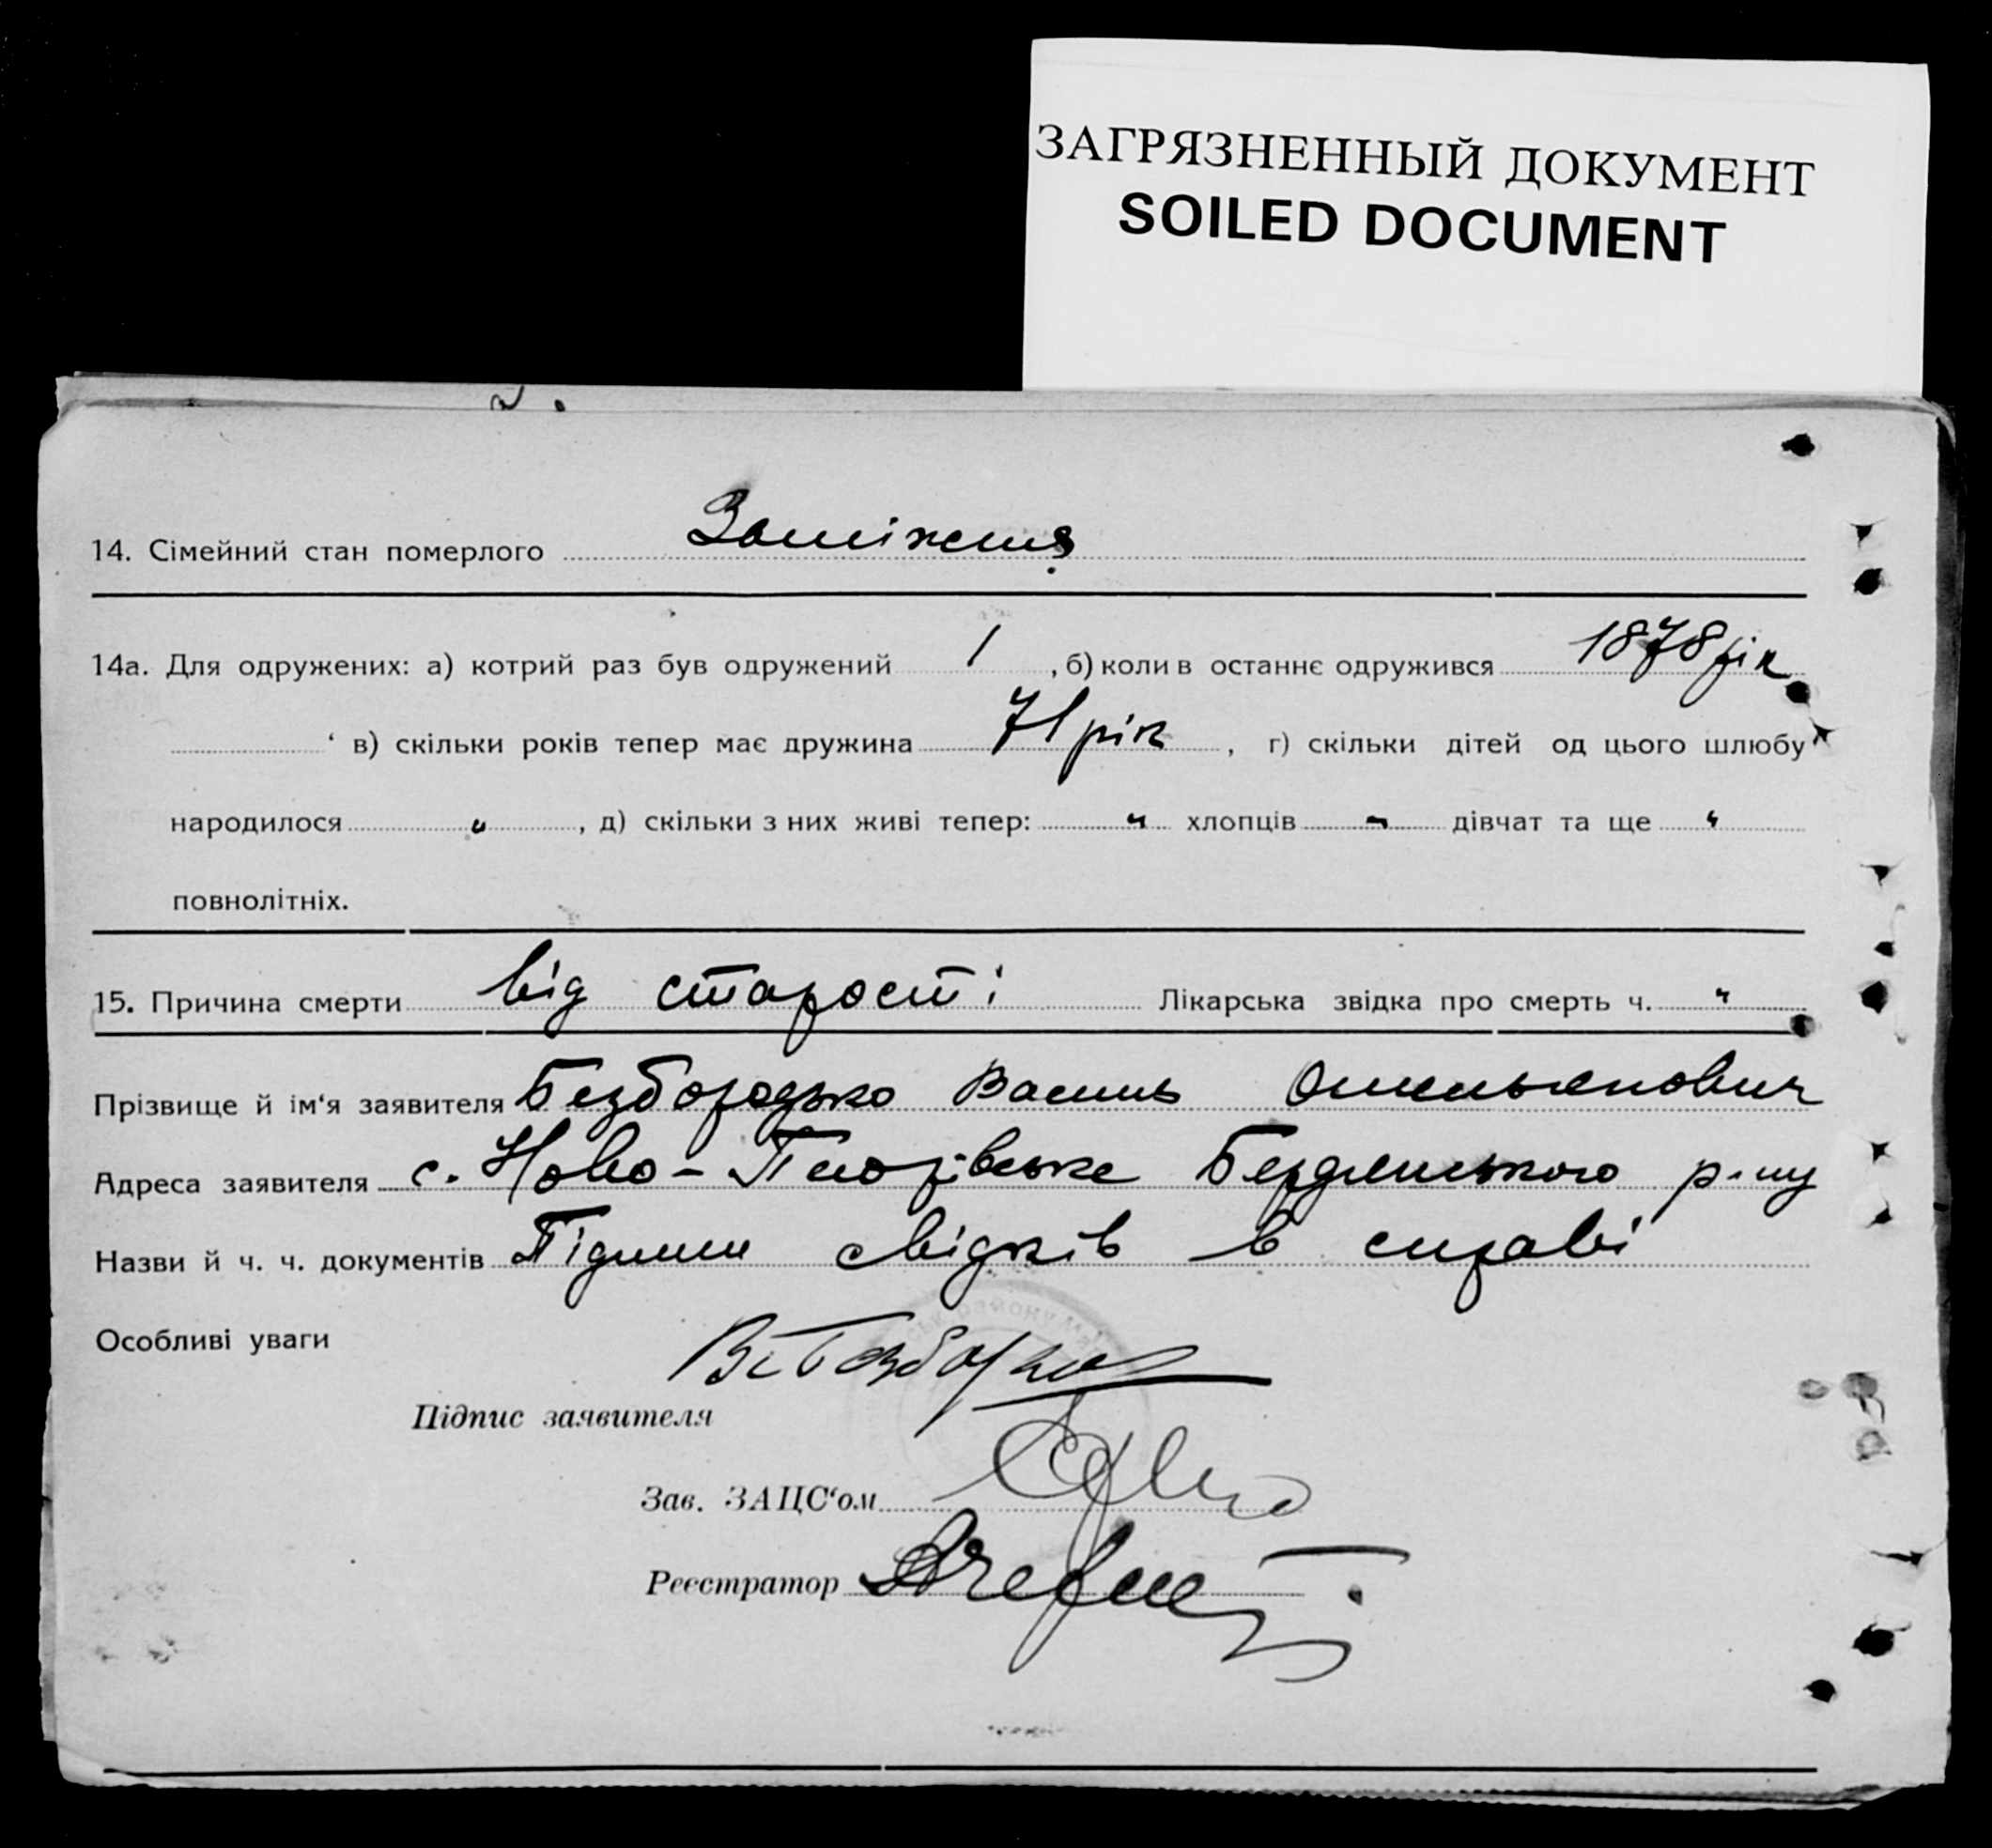 ЗАГРЯЗНЕННЫЙ ДОКУМЕНТ
SOILED DOCUMENT
14. Сімейний стан померлого Заміжня
14а. Для одружених: а) котрий раз був одружений 1, б) коли в останнє одружився 1878 рік
в) скільки років тепер має дружина 71 рік, г) скільки дітей од цього шлюбу
народилося „, д) скільки з них живі тепер: „ хлопців „ дівчат та ще „
повнолітніх.
15. Причина смерти від старості Лікарська звідка про смерть ч. „
Прізвище й ім'я заявителя Безбородько Василь Омельянович
Адреса заявителя с. Ново-Петрівське Бердянського р-ну
Назви й ч. ч. документів Підписи свідків в справі
Особливі уваги
Підпис заявителя
Зав. ЗАЦС'ом
Реєстратор